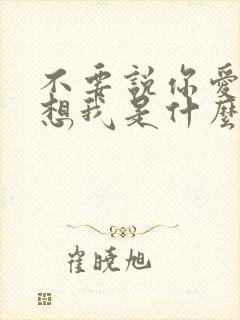 不要說你愛
想我是什麼
崔曉旭